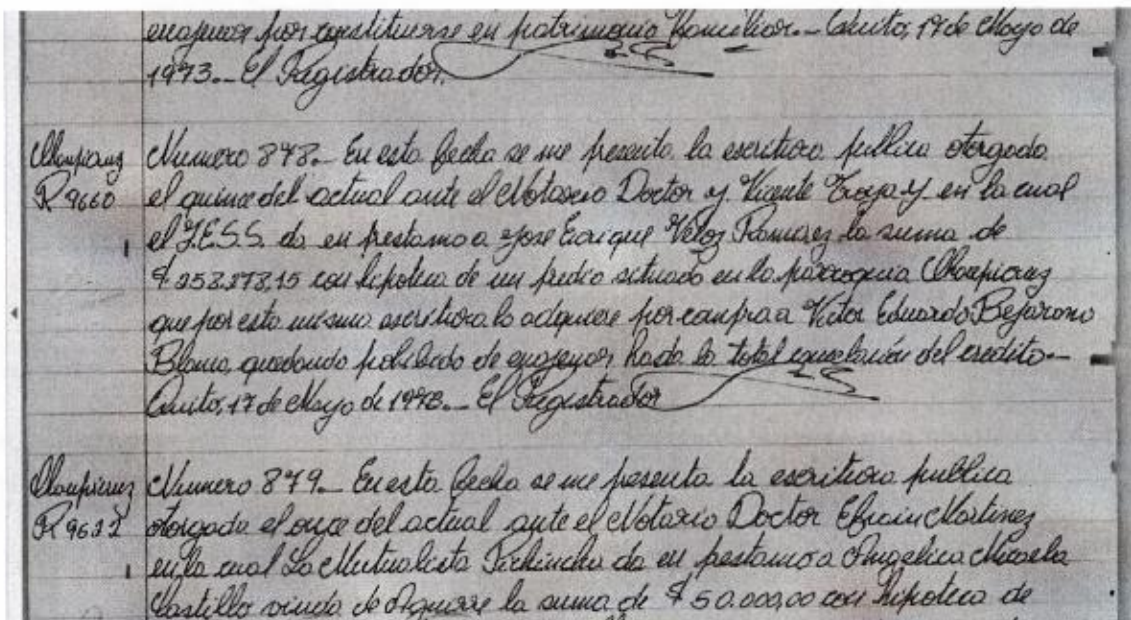 enajenar por constituirse en patrimonio familiar.- Quito, 17 de Mayo de
1973.- El Registrador.
Chaupicruz
R 9660
Numero 878.- En esta fecha se me presenta la escritura publica otorgada
el quince del actual ante el Notario Doctor J. Vicente Troya J. en la cual
el I.E.S.S. da en prestamo a Jose Enrique Veloz Ramirez la suma de
$ 258.878,15 con hipoteca de un predio situado en la parroquia Chaupicruz
que por esta misma escritura lo adquiere por compra a Victor Eduardo Bejarano
Blanco, quedando prohibido de enajenar hasta la total cancelación del credito.-
Quito, 17 de Mayo de 1973.- El Registrador
Chaupicruz
R 9632
Numero 879.- En esta fecha se me presenta la escritura publica
otorgada el once del actual ante el Notario Doctor Efrain Martinez
en la cual La Mutualista Pichincha da en prestamo a Angelica Micaela
Castillo viuda de Aguirre la suma de $ 50.000,00 con hipoteca de